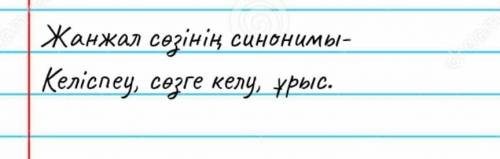 Жанжал сөзінің синонимы-
Келіспеу, сөзге келу, ұрыс.